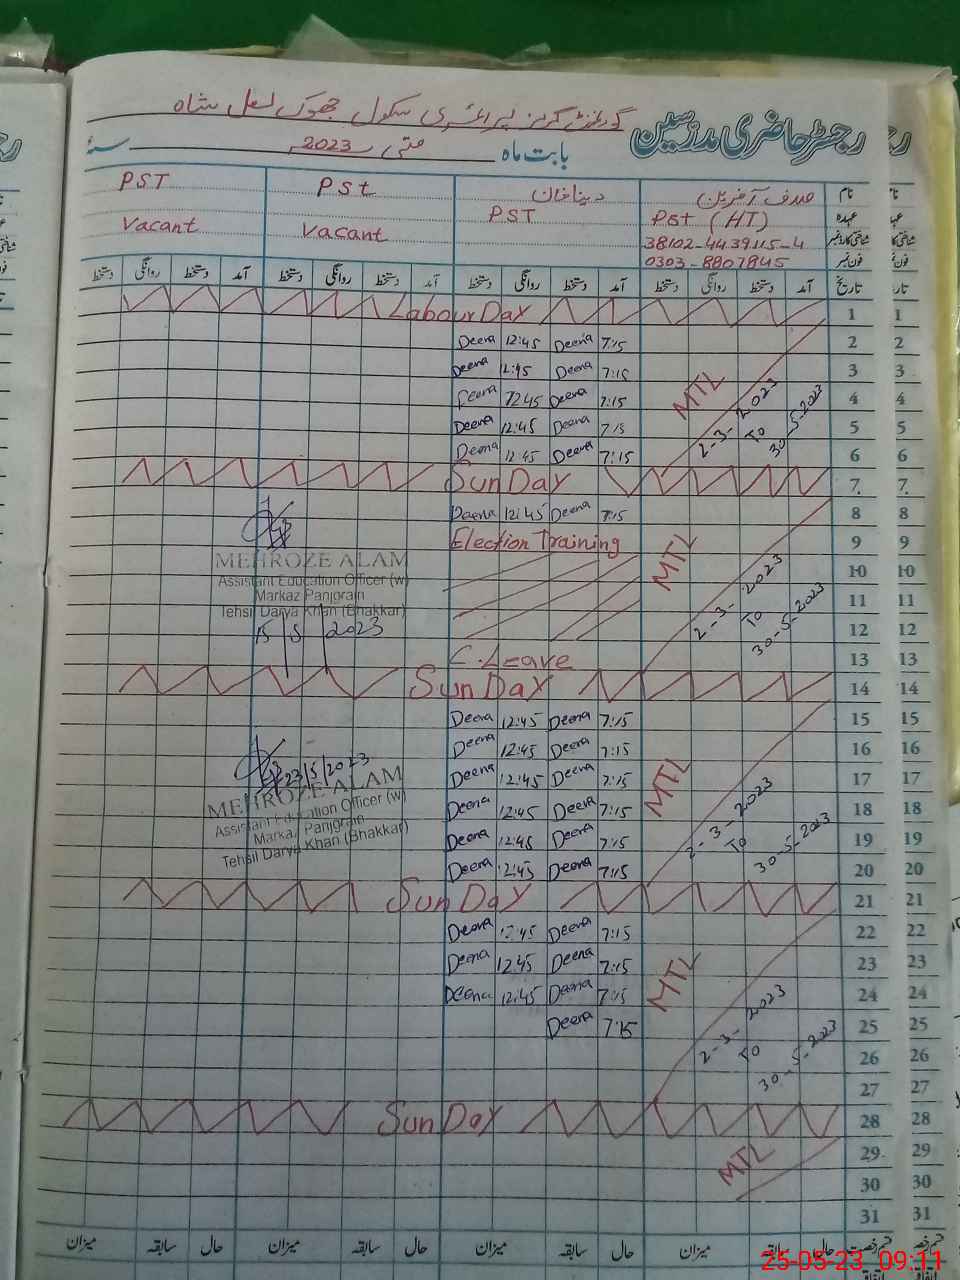 رجسٹر حاضری مدرسین گورنمنٹ گرلز پرائمری سکول جھوک لعل شاہ
بابت ماہ مئی 2023 سنۂ
نام صدف آفرین دینا خان PSt PST
عہدہ PSt (HT) PST Vacant Vacant
شناختی کارڈ نمبر 38102-4439115-4
فون نمبر 0303-8807845
تاریخ آمد دستخط روانگی دستخط آمد دستخط روانگی دستخط آمد دستخط روانگی دستخط آمد دستخط روانگی دستخط
1 Labour Day
2 7:15 Deena 12:45 Deena
3 7:15 Deena 12:45 Deena
MTL
4 7:15 Deena 12:45 Deena
2-3-2023
5 7:15 Deena 12:45 Deena
To
30-5-2023
6 7:15 Deena 12:45 Deena
7 Sun Day
8 7:15 Deena 12:45 Deena
9 Election Training
MTL
MEHROZE ALAM
10
Assistant Education Officer (w)
Markaz Panjgrain
11
2-3-2023
Tehsil Darya Khan (Bhakkar)
To
12
30-5-2023
15 5 2023
13 C.Leave
14 Sun Day
15 7:15 Deena 12:45 Deena
16 7:15 Deena 12:45 Deena
23/5/2023
17 7:15 Deena 12:45 Deena
MTL
MEHROZE ALAM
18 7:15 Deena 12:45 Deena
Assistant Education Officer (w)
2-3-2023
19 7:15 Deena 12:45 Deena
To
Markaz Panjgrain
30-5-2023
Tehsil Darya Khan (Bhakkar)
20 7:15 Deena 12:45 Deena
21 Sun Day
22 7:15 Deena 12:45 Deena
23 7:15 Deena 12:45 Deena
MTL
24 7:15 Deena 12:45 Deena
25 7:15 Deena
2-3-2023
26
To
30-5-2023
27
28 Sun Day
29
MTL
30
31
قسم رخصت حال سابقہ میزان حال سابقہ میزان حال سابقہ میزان حال سابقہ میزان
25-05-23 09:11